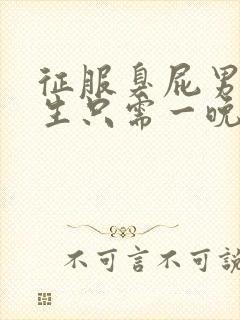 征服臭屁男
生只需一晚
不可言不可說